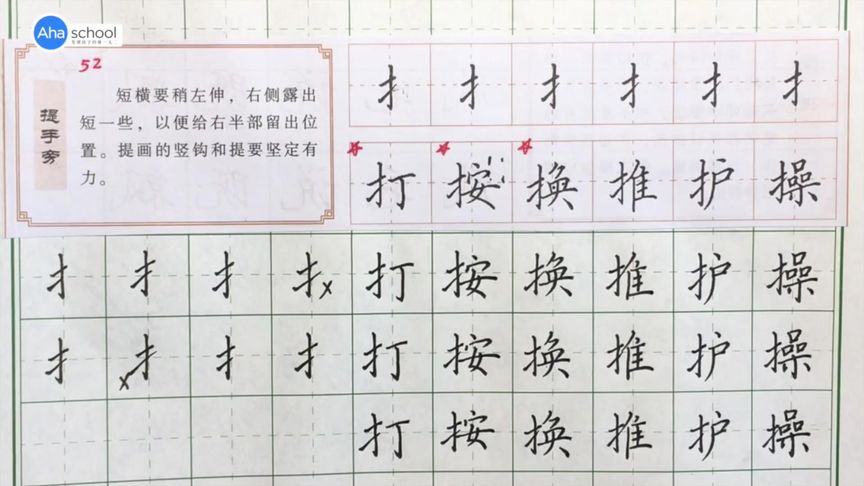 Aha school
52
提手旁
短横要稍左伸，右侧露出
短一些，以便给右半部留出位
置。提画的竖钩和提要坚定有
力。
扌 扌 扌 扌 扌 扌
打 按 换 推 护 操
扌 扌 扌 扌 x 打 按 换 推 护 操
扌 x 扌 扌 扌 打 按 换 推 护 操
打 按 换 推 护 操